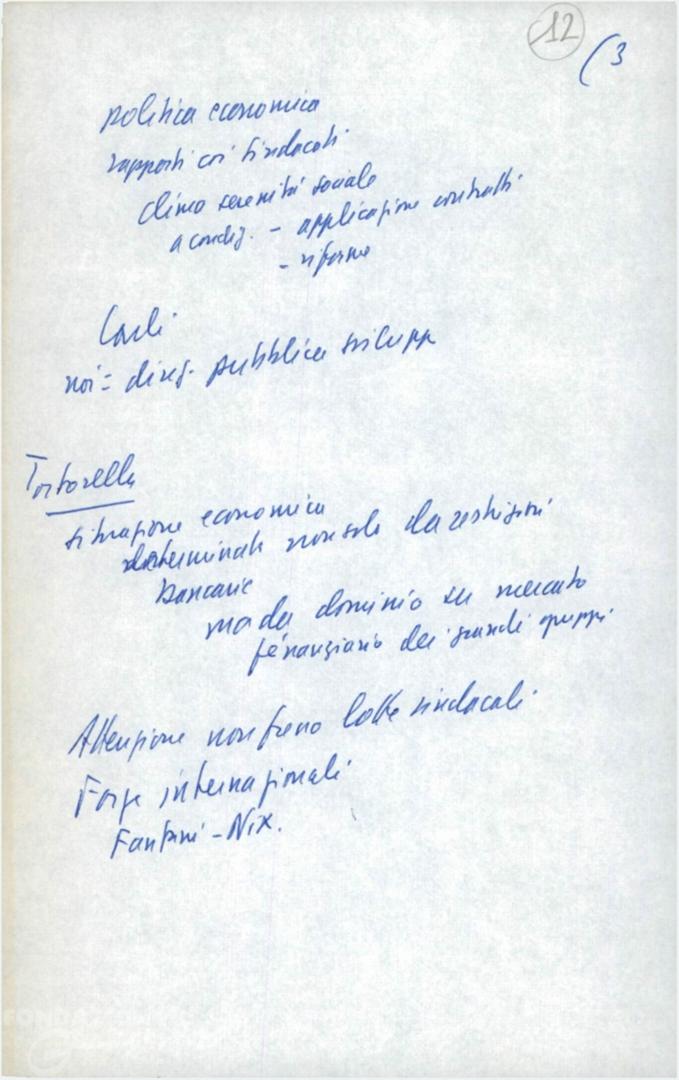 12
(3
politica economica
rapporti coi sindacati
clima serenità sociale
a condiz. - applicazione contratti
- riforme
Carli
noi = direz. pubblica svilupp
Tortorella
situazione economica
determinata non solo da restrizioni
bancarie
ma da dominio su mercato
finanziario dei grandi gruppi
Attenzione non freno lotte sindacali
Forze internazionali
Fanfani - Nix.
FONDAZIONE